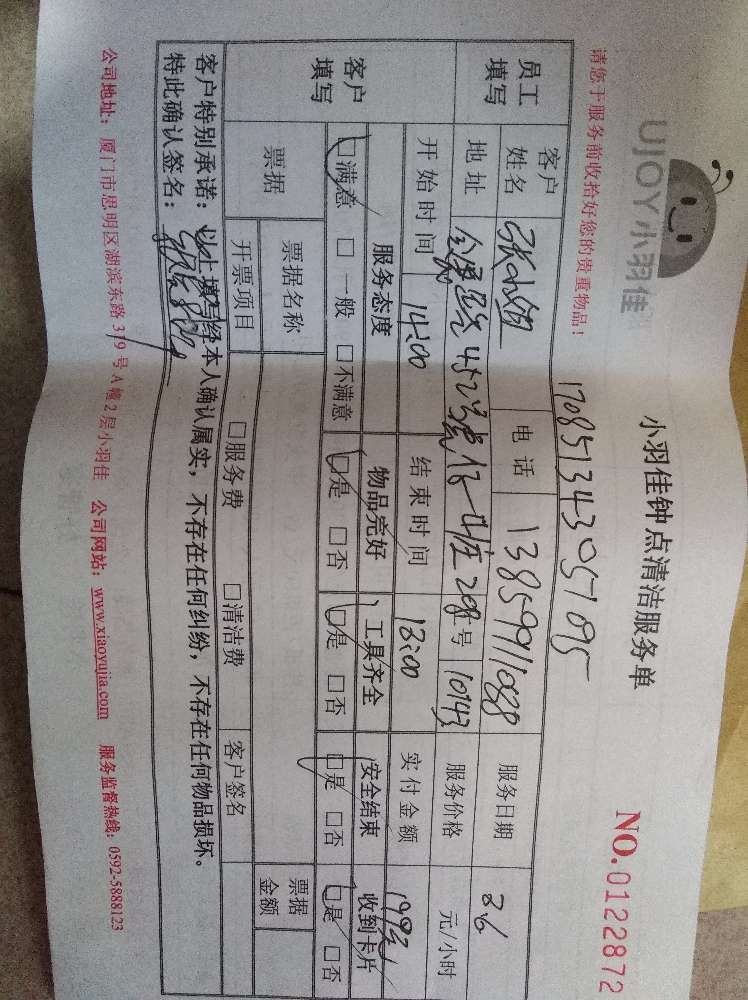 UJOY小羽佳
小羽佳钟点清洁服务单
NO.0122872
请您于服务前收拾好您的贵重物品!
1708513430951095
员工填写
客户姓名
电话 13859911088
服务日期 3/6
地址
证号 10143
服务价格 元/小时
开始时间 14:00
结束时间
实付金额
客户填写
服务态度 物品完好 工具齐全 安全结束 收到卡片
□满意 □一般 □不满意 □是 □否 □是 □否 □是 □否 □是 □否
票据
票据名称
票据金额
开票项目 □服务费 □清洁费 客户签名
客户特别承诺:以上填写经本人确认属实,不存在任何纠纷,不存在任何物品损坏。
特此确认签名:
公司地址:厦门市思明区湖滨东路319号A幢2层小羽佳 公司网站:www.xiaoyujia.com 服务监督热线:0592-5888123